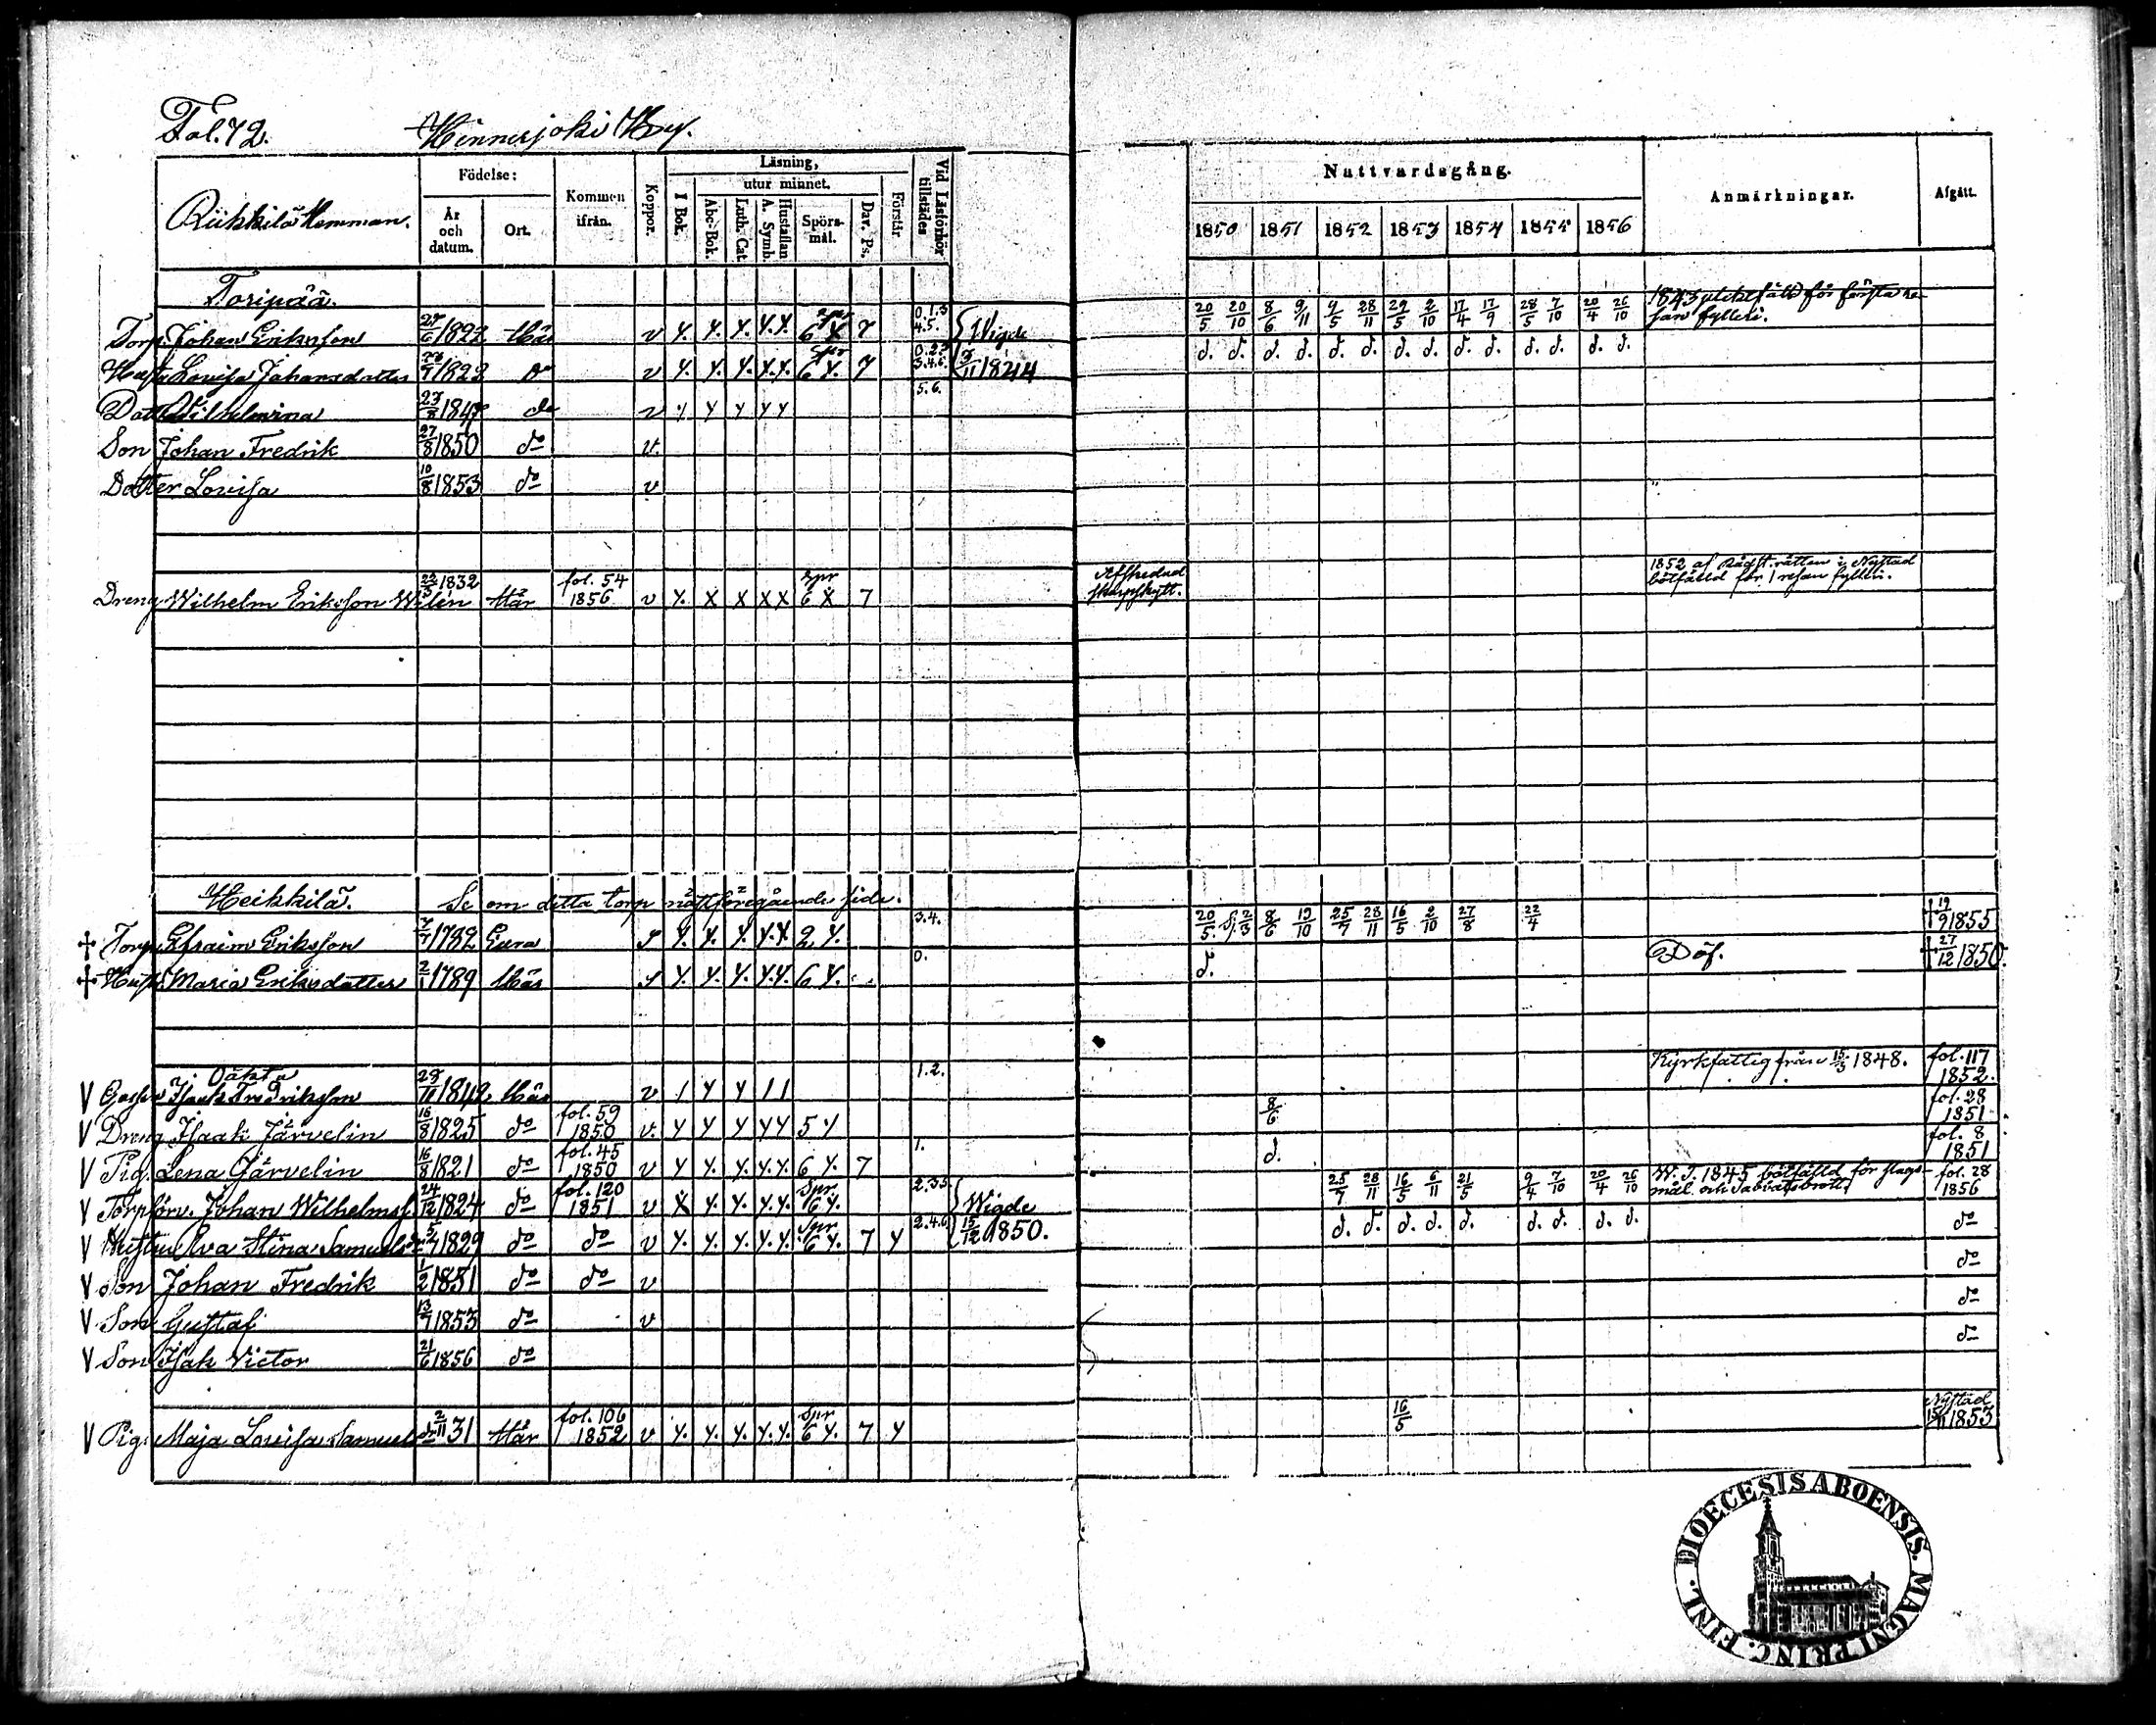 Fol. 72. Hinnerjoki By.
Riikkilä Hemman.
Födelse:
År och datum.
Ort.
Kommen ifrån.
Koppor.
Läsning,
utur minnet.
I Bok.
Abc-Bok.
Luth. Cat.
A. Symb.
Hustaflan
Spörs-mål.
Dav. Ps.
Förstår
Vid Läsförhör tillstädes
Nattvardsgång.
1850 1851 1852 1853 1854 1855 1856
Anmärkningar.
Afgått.
Toripää.
Torp. Johan Eriksson 27/6 1822 Här v 6 X 7 0.1.3 4.5. Wigde 20/5 20/10 8/6 9/11 9/5 28/11 29/5 2/10 17/4 17/9 28/5 7/10 20/4 26/10 1843 för första re-
san fylleri.
Hust. Lovisa Johansdotter 1822 v 6 7 0.2. 3.4.6. 3/11 1844 d. d. d. d. d. d. d. d. d. d. d. d. d. d.
Dotter Wilhelmina 23/8 184 do v 5.6.
Son Johan Fredrik 27/8 1850 do v.
Dotter Lovisa 10/8 1853 do v
Dreng Wilhelm Eriksson Welén 22/5 1832 Här fol. 54 1856 v X X X X spr 6 X 7 Afskedad skarpskytt. 1852 af Rådst. rätten i Nystad
bötfälld för 1 resan fylleri.
Heikkilä. Se om detta torp nästföregående sida.
† Torp. Efraim Eriksson 7/7 1782 Eura 2 3.4. 20/5. 2/3 8/6 19/10 25/7 28/11 16/5 2/10 27/8 22/4 † 19/9 1855
† Hust. Maria Eriksdotter 2/1 1789 Här 6 0. d. Döf. † 27/12 1850.
Oäkta
V Gossen Isaak Fredriksson 28/11 1842 Här v 1.2. Kyrkfattig från 15/3 1848. fol. 117 1852.
V Dreng Isaak Järvelin 16/8 1825 do fol. 59 1850 v. 5 8/6 fol. 28 1851
V Pig. Lena Järvelin 16/8 1821 do fol. 45 1850 v 6 7 1. d. fol. 8 1851
V Torpförv. Johan Wilhelmsf. 24/12 1824 do fol. 120 1851 v Spr. 6 2.3.5. Wigde 25/7 28/11 16/5 6/11 21/5 9/4 7/10 20/4 26/10 W. T. 1845 bötfälld för slags-
mål och sabbatsbrott. fol. 28 1856
V Hustru Eva Stina Samuelsdr 5/7 1829 do do v Spr. 6 7 2.4.6. 15/12 1850. d. d. d. d. d. d. d. d. d. do
V Son Johan Fredrik 1/2 1851 do do v do
V Son Gustaf 13/7 1853 do v do
V Son Isak Victor 21/6 1856 do do
V Pig. Maja Lovisa Samuelsdr 2/11 31 Här fol. 106 1852 v Spr 6 7 16/5 Nystad 15/11 1853
DIOECESIS ABOENSIS. MAGNI PRINC. FINL.